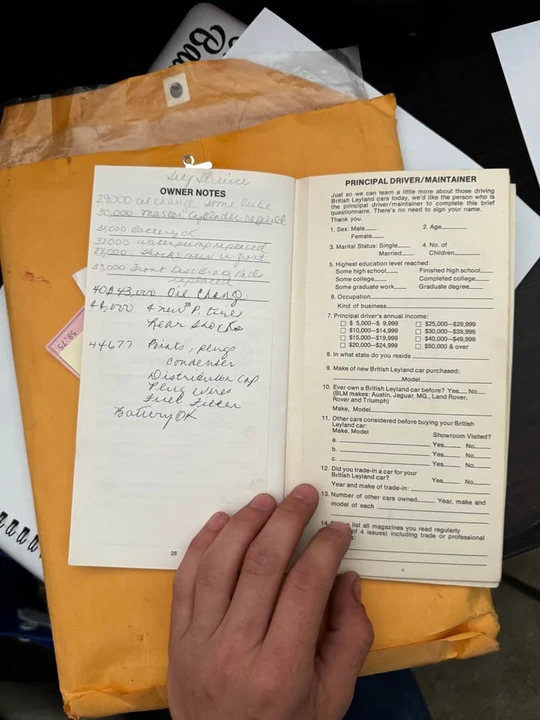 Self Service
OWNER NOTES
29,000 oil change some lube
30,000 Master Cylinder replaced
31,000 Battery OK
32000 water pump replaced
shocks new in front
33,000 Front Disc Brake Pads
replaced
43,000 Oil Change
4 new tires
Rear Shocks
44677 Points, plugs
condenser
Distributor Cap
Plug wires
Fuel Filter
Battery OK
28
PRINCIPAL DRIVER/MAINTAINER
Just so we can learn a little more about those driving
British Leyland cars today, we'd like the person who is
the principal driver/maintainer to complete this brief
questionnaire. There's no need to sign your name.
Thank you.
1. Sex: Male___ 2. Age___
Female___
3. Marital Status: Single___ 4. No. of
Married___ Children___
5. Highest education level reached:
Some high school___ Finished high school___
Some college___ Completed college___
Some graduate work___ Graduate degree___
6. Occupation___
Kind of business___
7. Principal driver's annual income:
☐ $ 5,000—$ 9,999 ☐ $25,000—$29,999
☐ $10,000—$14,999 ☐ $30,000—$39,999
☐ $15,000—$19,999 ☐ $40,000—$49,999
☐ $20,000—$24,999 ☐ $50,000 & over
8. In what state do you reside ___
9. Make of new British Leyland car purchased:
___Model___
10. Ever own a British Leyland car before? Yes___No___
(BLM makes: Austin, Jaguar, MG, Land Rover,
Rover and Triumph)
Make, Model___
11. Other cars considered before buying your British
Leyland car:
Make, Model Showroom Visited?
a.___ Yes___ No___
b.___ Yes___ No___
c.___ Yes___ No___
12. Did you trade-in a car for your
British Leyland car? Yes___ No___
Year and make of trade-in:___
13. Number of other cars owned___ Year, make and
model of each ___
14. list all magazines you read regularly
of 4 issues) including trade or professional
58.75